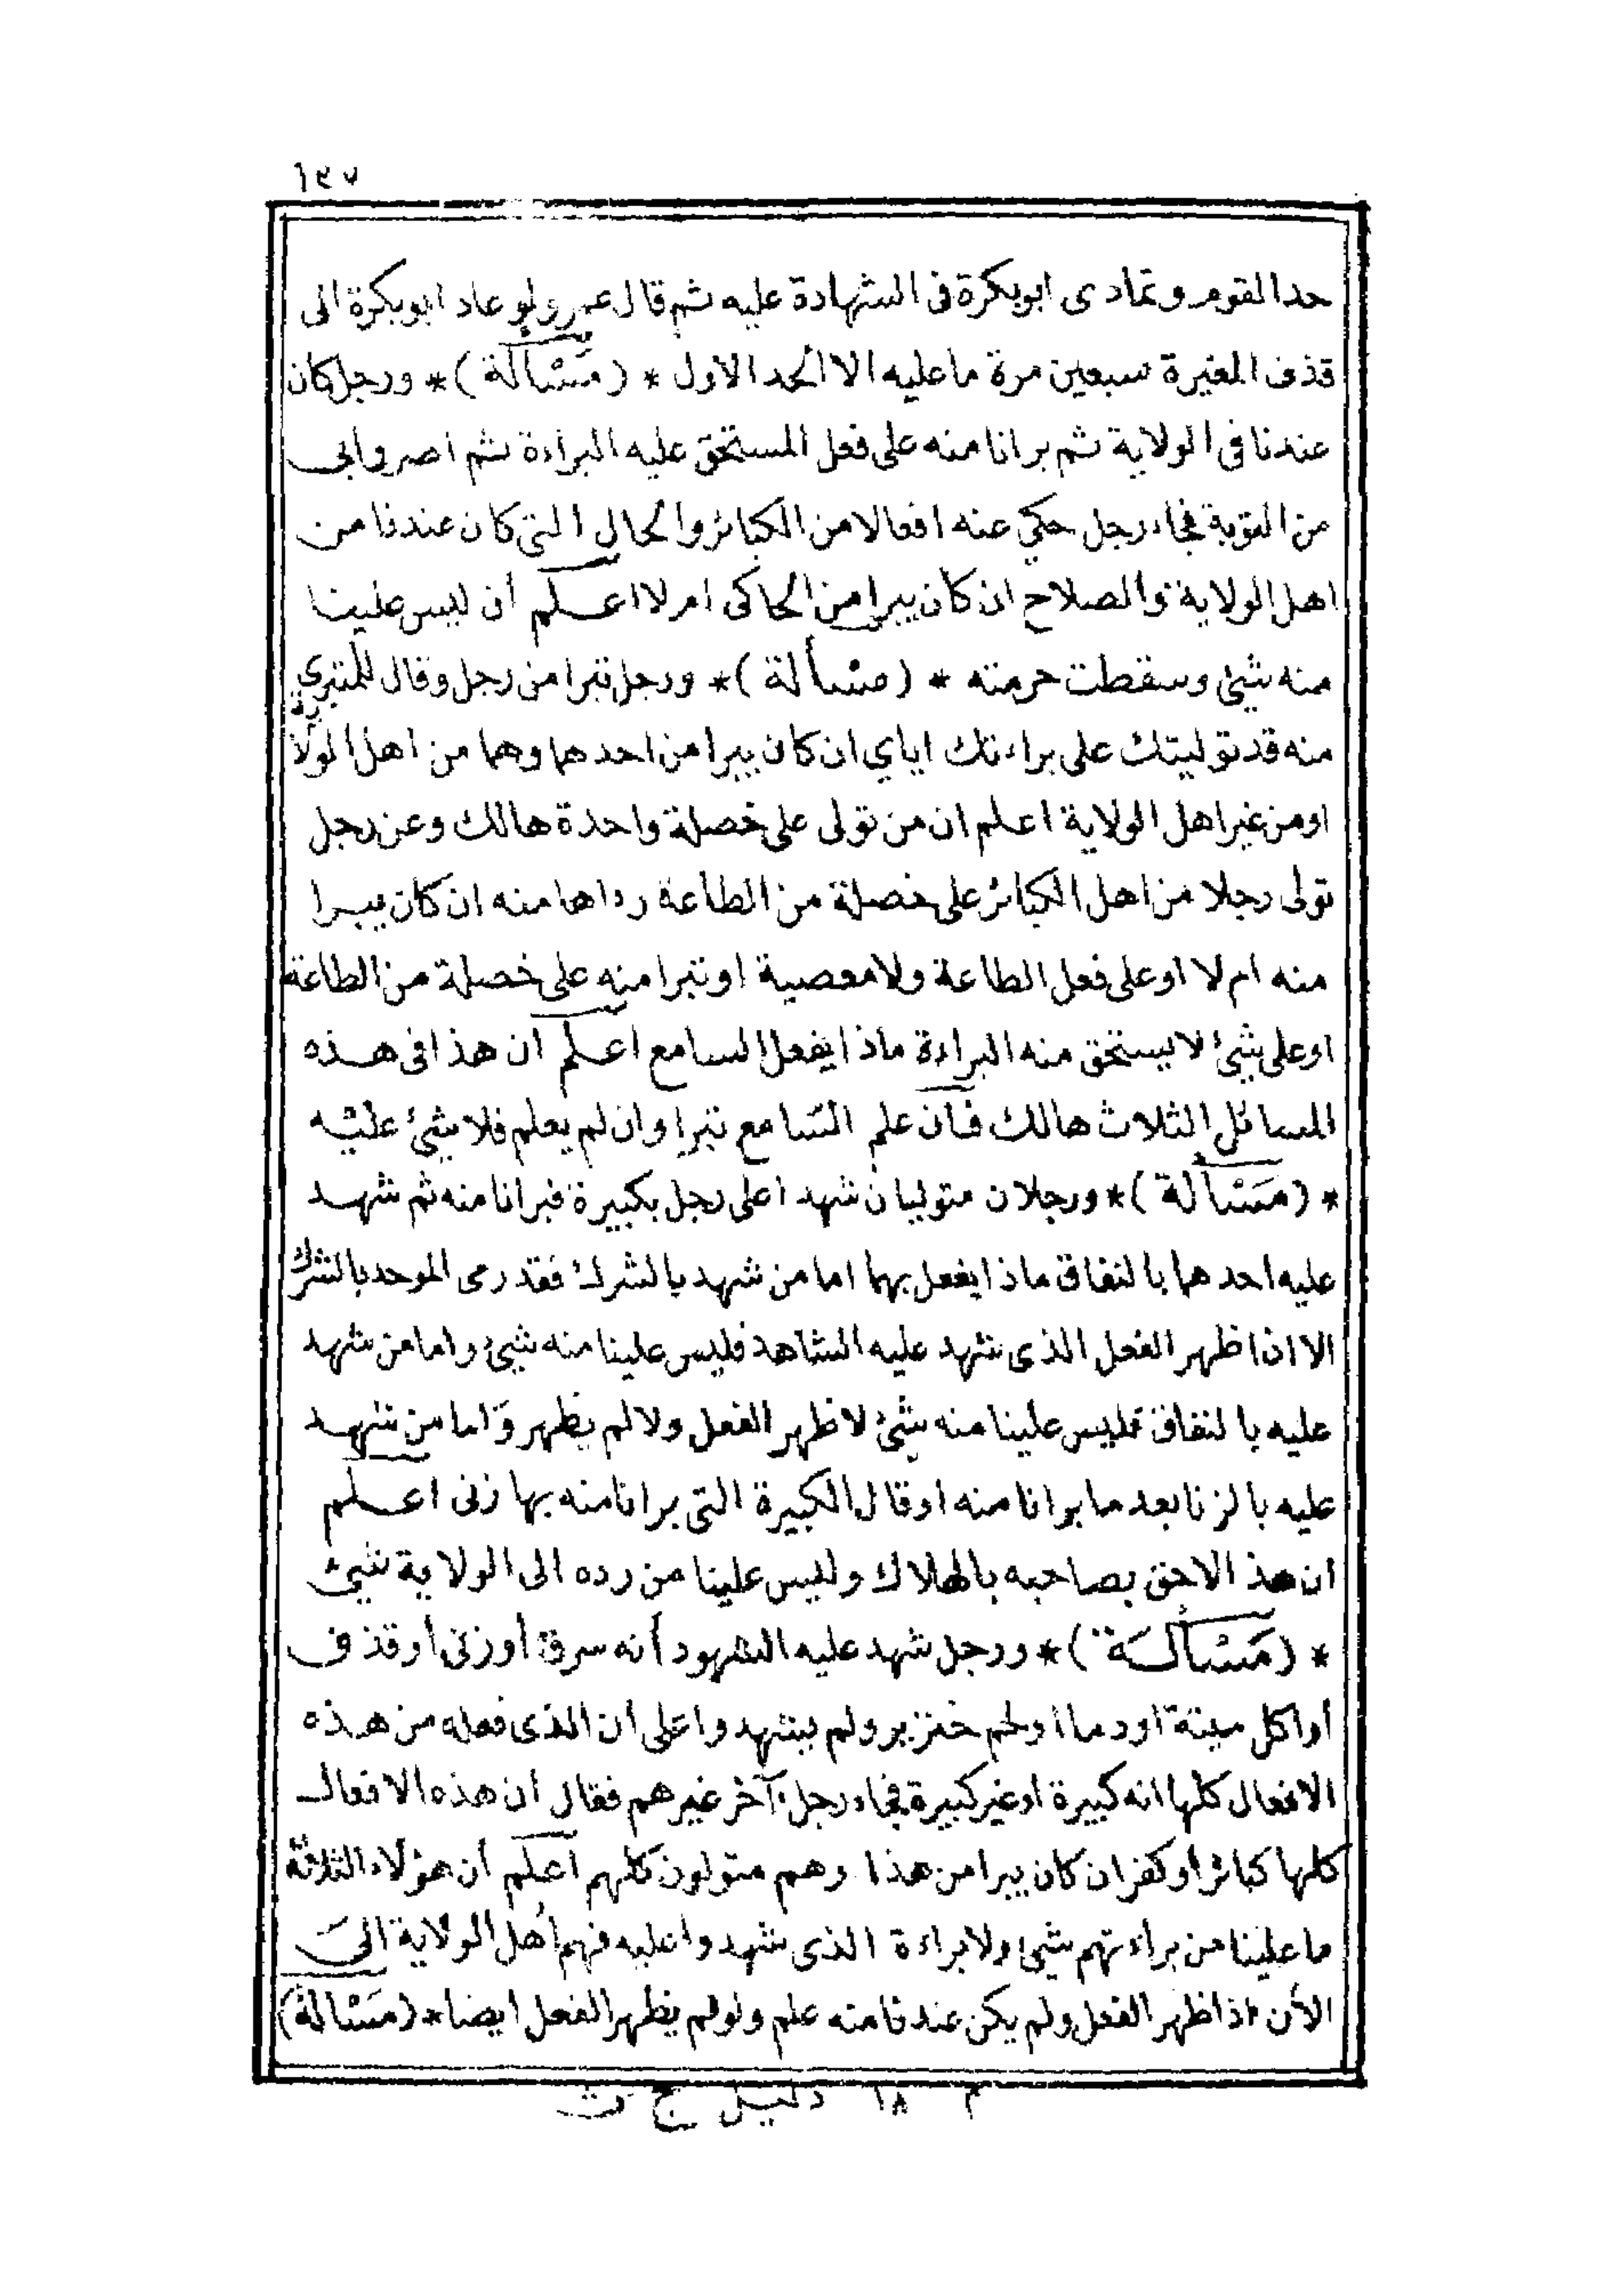 ١٣٧
حد القوم وتمادى ابوبكرة فى الشهادة عليه ثم قال عمر ولو عاد ابوبكرة الى
قذف المغيرة سبعين مرة ما عليه الا الحد الاول * (مَسْألة) * ورجل كان
عندنا فى الولاية ثم برانا منه على فعل المستحق عليه البراءة ثم اصر وابى
من التوبة فجاء رجل حكى عنه افعالا من الكبائر والحال التى كان عندنا من
اهل الولاية والصلاح ان كان يبرا من الحاكى ام لا اعلم أن ليس علينا
منه شيئ وسقطت حرمته * (مسْألة) * ورجل تبرا من رجل وقال للمتبرى
منه قد توليتك على براءتك اياي ان كان يبرا من احدهما وهما من اهل الولاية
او من غير اهل الولاية اعلم ان من تولى على خصلة واحدة هالك وعن رجل
تولى رجلا من اهل الكبائر على خصلة من الطاعة رءاها منه ان كان يبرا
منه ام لا او على فعل الطاعة ولا معصية او تبرا منه على خصلة من الطاعة
او على شيئ لا يستحق منه البراءة ماذا يفعل السامع اعلم ان هذا فى هذه
المسائل الثلاث هالك فان علم السّامع تبرا وان لم يعلم فلا شيئ عليه
* (مَسْألة) * ورجلان متوليان شهدا على رجل بكبيرة فبرانا منه ثم شهد
عليه احدهما بالنفاق ماذا يفعل بهما اما من شهد بالشرك فقد رمى الموحد بالشرك
الا اذا ظهر الفعل الذى شهد عليه الشاهد فليس علينا منه شيئ واما من شهد
عليه بالنفاق فليس علينا منه شيئ لا ظهر الفعل ولا لم يظهر وَاما من شهد
عليه بالزنا بعد ما برانا منه او قال الكبيرة التى برانا منه بها زنى اعلم
ان هذ الاحق بصاحبه بالهلاك وليس علينا من رده الى الولاية شيئ
* (مَسْألَة) * ورجل شهد عليه الشهود أنه سرق أو زنى أو قذف
أو اكل ميتة او دما او لحم خنزير ولم يشهدوا على ان الذى فعله من هذه
الافعال كلها انه كبيرة او غير كبيرة فجاء رجل آخر غيرهم فقال ان هذه الافعال
كلها كبائر أو كفر ان كان يبرا من هذا وهم متولون كلهم أعلم أن هؤلاء الثلاثة
ما علينا من براءتهم شيئ ولا براءة الذى شهدوا عليه فهم أهل الولاية الىَ
الأن اذا ظهر الفعل ولم يكن عندنا منه علم ولو لم يظهر الفعل ايضا * (مَسْألة)
م ١٨ دليل ج ث